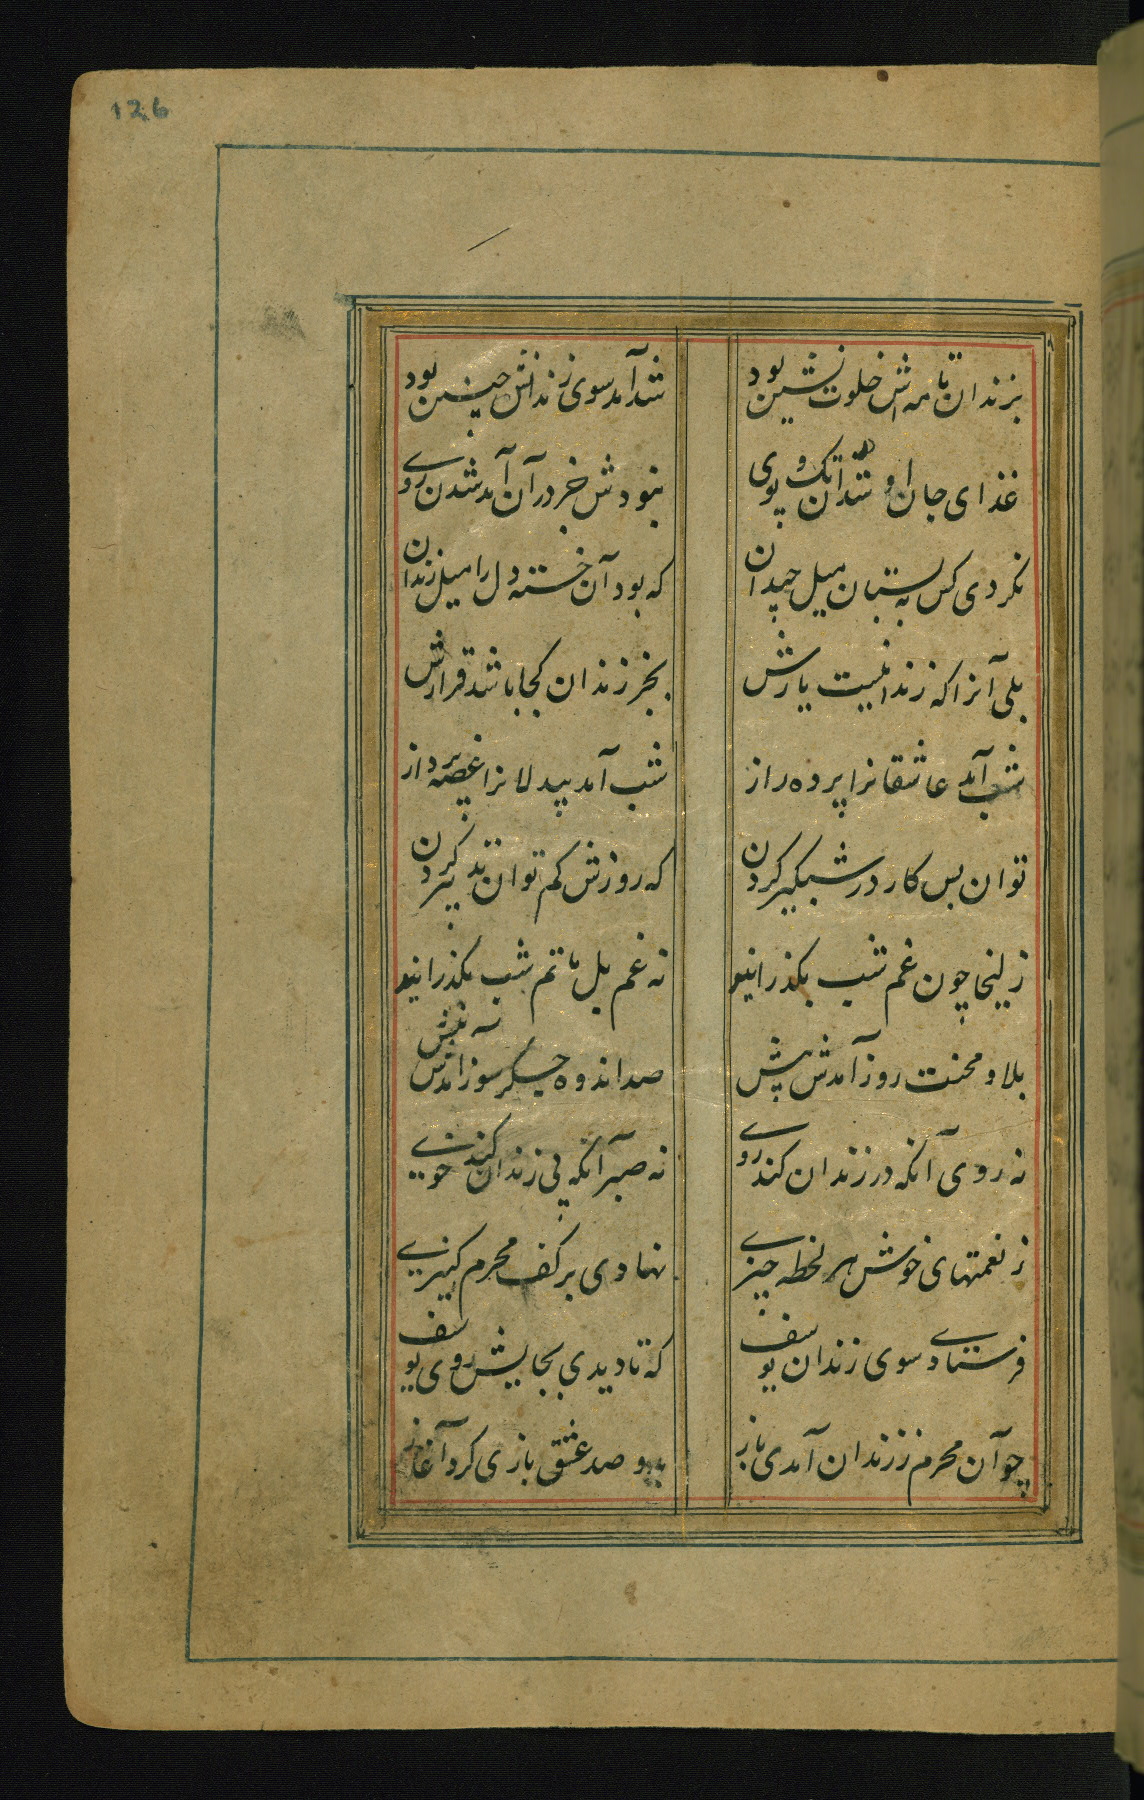 126
بزندان تا مه اش خلوت نشین بود شد آمد سوی زندانش چنین بود
غذای جان او شد آن تک و پوی نبودش خبر در آن آمد شدن روی
نکردی کس به بستان میل چندان که بود آن خسته دل را میل زندان
بلی آنرا که زندانیست یارش بجز زندان کجا باشد قرارش
شب آمد عاشقانرا پرده راز شب آمد بیدلانرا غصه پرداز
توان بس کار در شبگیر کردن که روزش کم توان تدبیر کردن
زلیخا چون غم شب بگذرانید نه غم بل ماتم شب بگذرانید
بلا و محنت روز آمدش پیش صد اندوه جگر سوز آمدش پیش
نه روی آنکه در زندان کند روی نه صبر آنکه بی زندان کند خوی
ز نعمتهای خوش هر لحظه چیزی نهادی بر کف محرم کنیزی
فرستادی سوی زندان یوسف که تا دیدی بجایش روی یوسف
چو آن محرم ز زندان آمدی باز بدو صد عشق بازی کرد آغاز